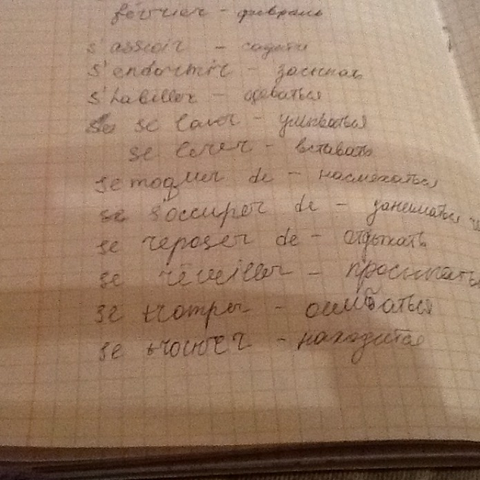 février - февраль
s'assoir - садить
s'endormir - засыпать
s'habiller - одеваться
se laver - умываться
se lever - вставать
se moquer de - насмехаться
se s'occuper de - заниматься
se reposer de - отдыхать
se réveiller - просыпаться
se tromper - ошибаться
se trouver - находится